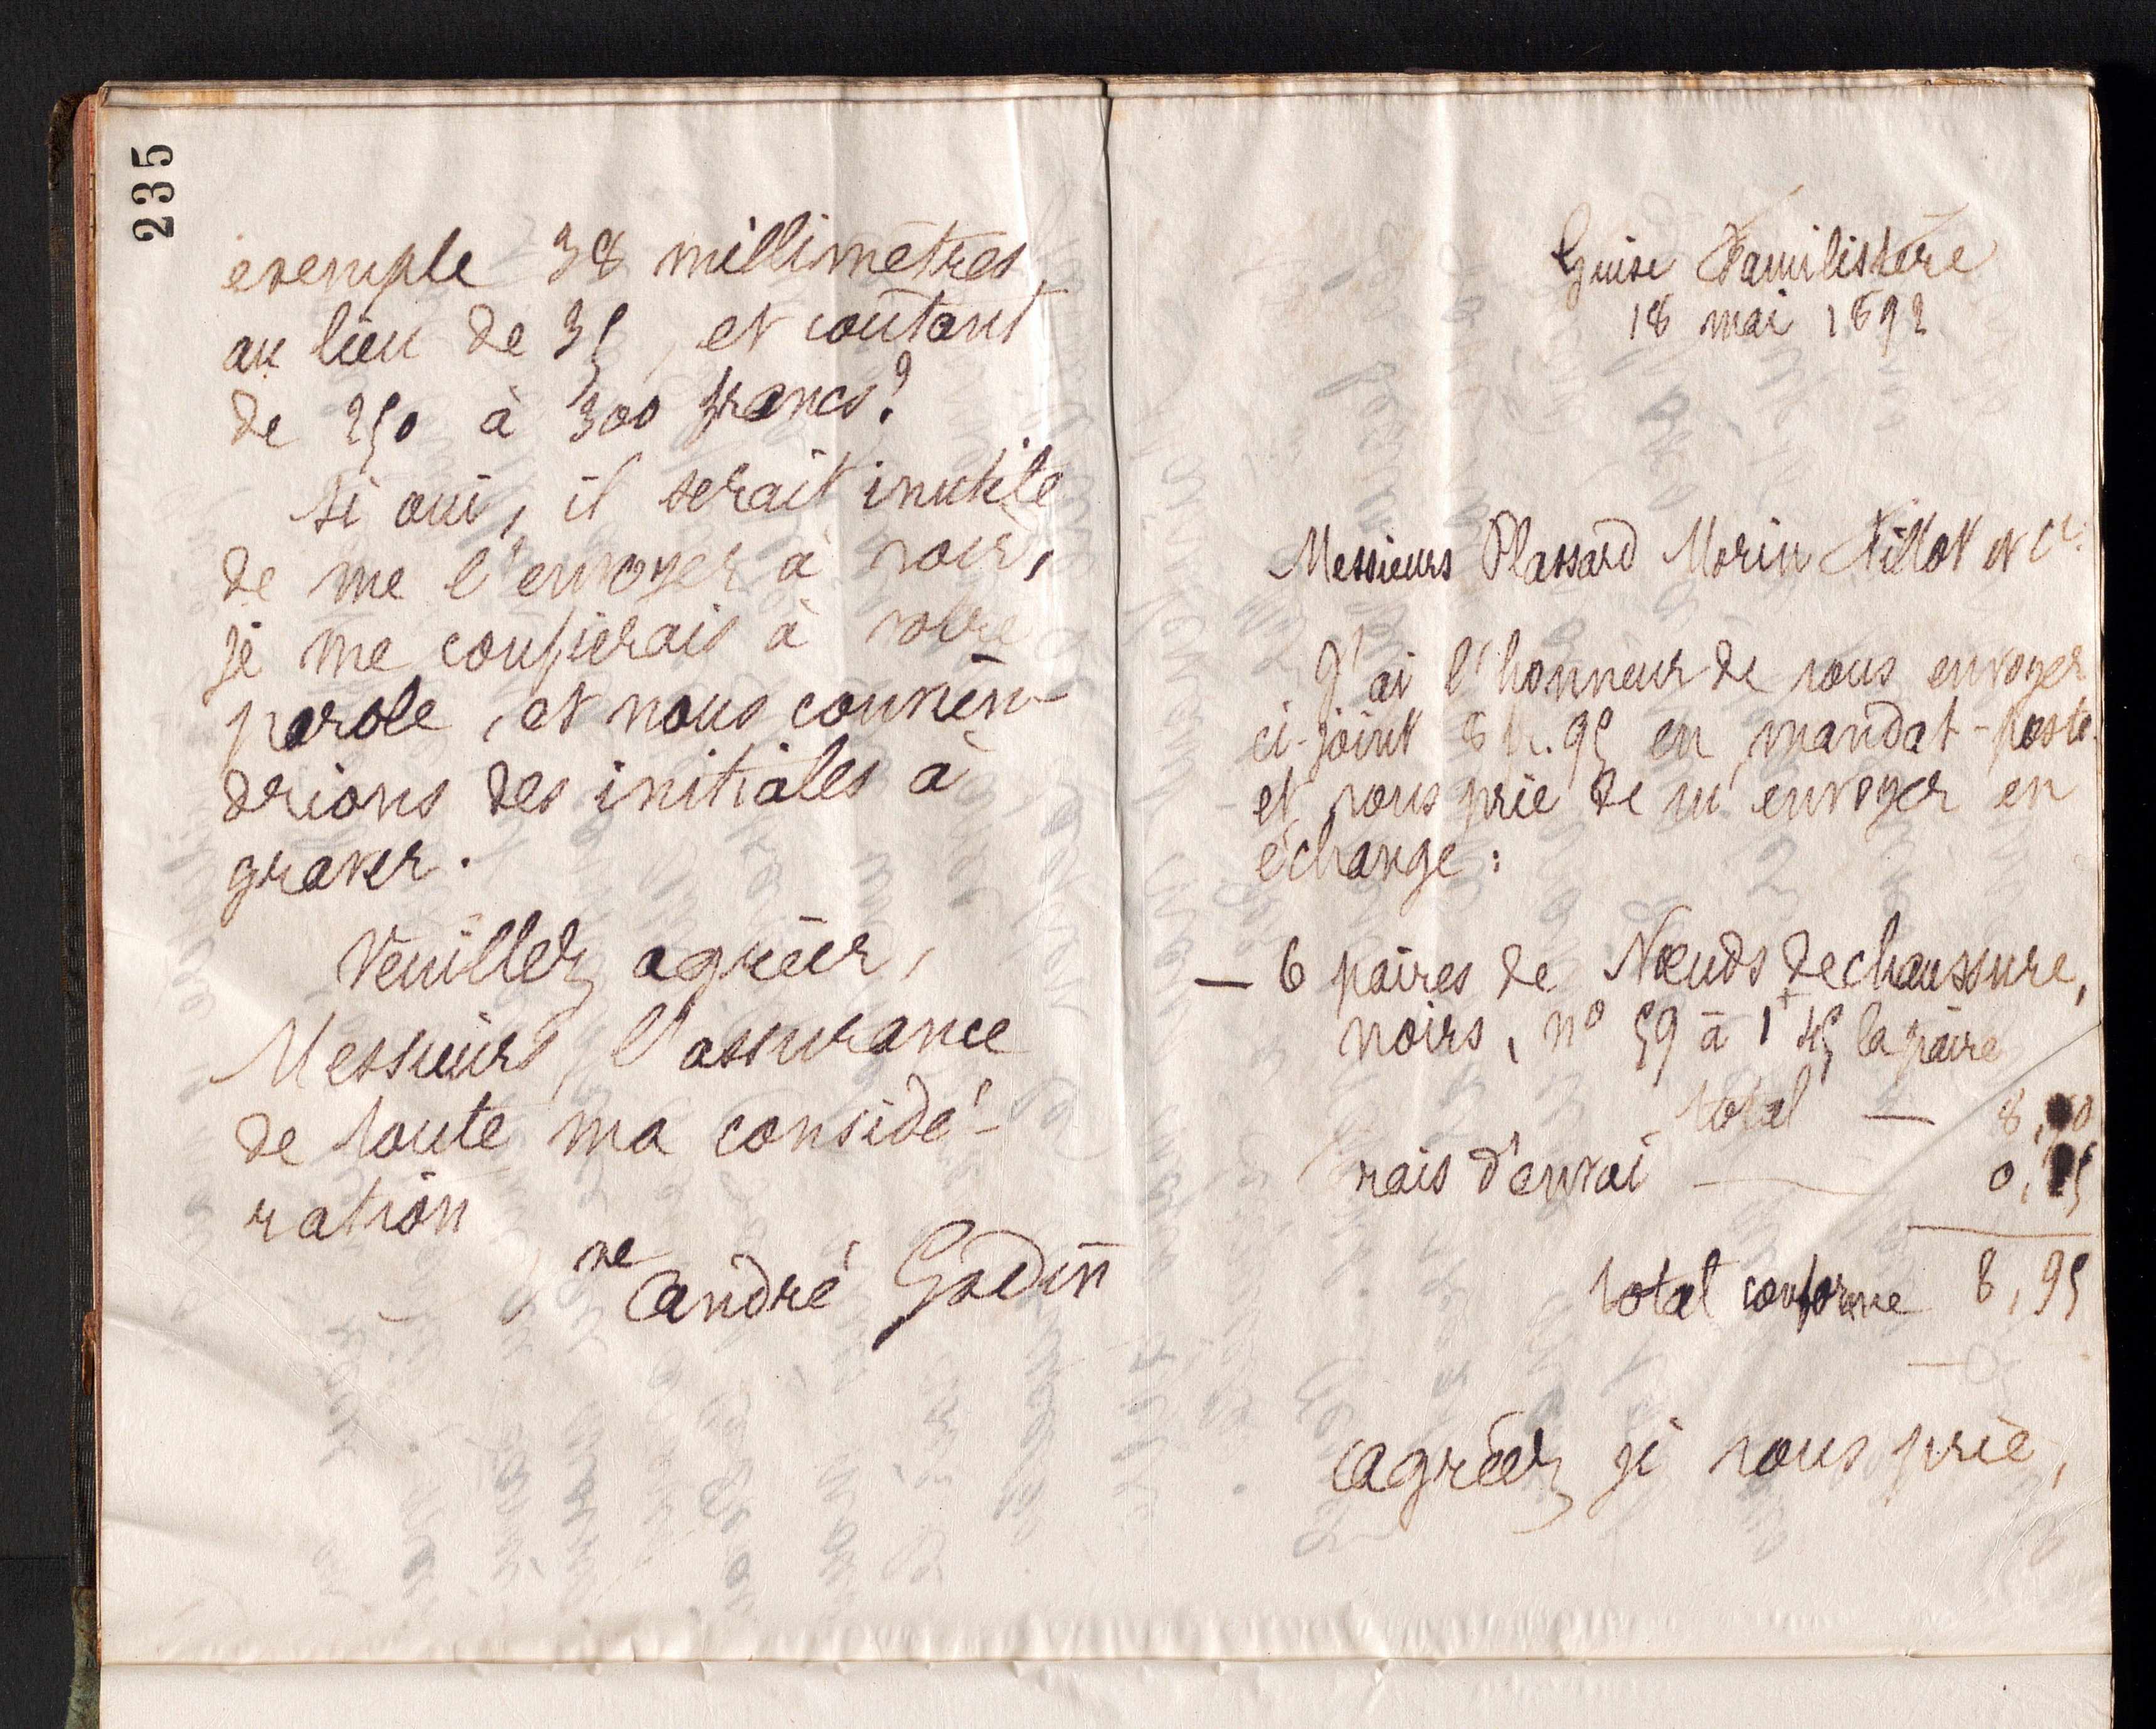 235
exemple 38 millimètres
au lieu de 35, et coûtant
de 250 à 300 francs?
Si oui, il serait inutile
de me l'envoyer à voir,
je me confierais à votre
parole, et nous convien-
drions des initiales à
graver.
Veuillez agréer,
Messieurs, l'assurance
de toute ma considé-
ration
ve André Godin
Guise Familistère
18 mai 1892
Messieurs Plassard Morin Fillot et Cie
J'ai l'honneur de vous envoyer
ci-joint 8 fr. 95 en mandat-poste
et vous prie de m'envoyer en
échange:
— 6 paires de Nœuds de chaussure,
noirs, no 59 à 1f 45 la paire
total — 8,70
rais d'envoi — 0,25
total conforme 8,95
Agréez je vous prie,